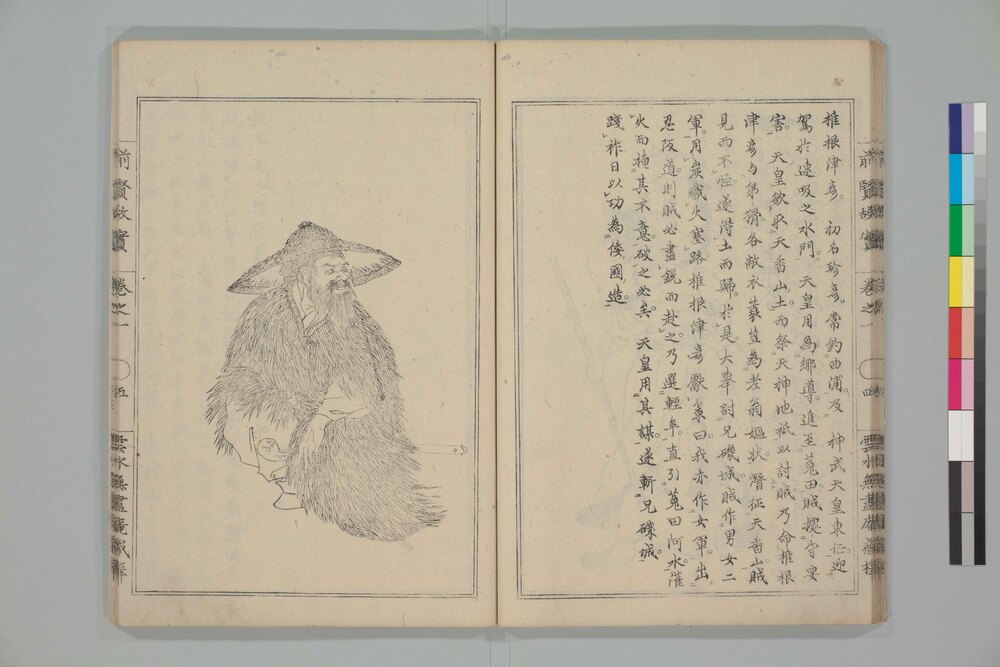 椎根津彦。初名珍彦。常釣曲浦。及　神武天皇東征迎
駕於速吸之水門。　天皇用為鄉導。進至菟田。賊據守要
害。　天皇欲取天香山土而祭天神地祇以討賊。乃命椎根
津彦与弟猾各敝衣蓑笠為老翁嫗狀。潛征天香山。賊
見而不怪。遂得土而歸。於是大擧討兄磯城。賊作男女二
軍。用炭熾火塞路。椎根津彦獻策曰。我亦作女軍。出
忍阪道。則賊必盡銳而赴之。乃選輕卒。直引菟田河水。灌
火而掩其不意。破之必矣。　天皇用其謀。遂斬兄磯城。
踐祚日以功為倭國造。
前賢故實
卷之一
四
前賢故實
卷之一
五